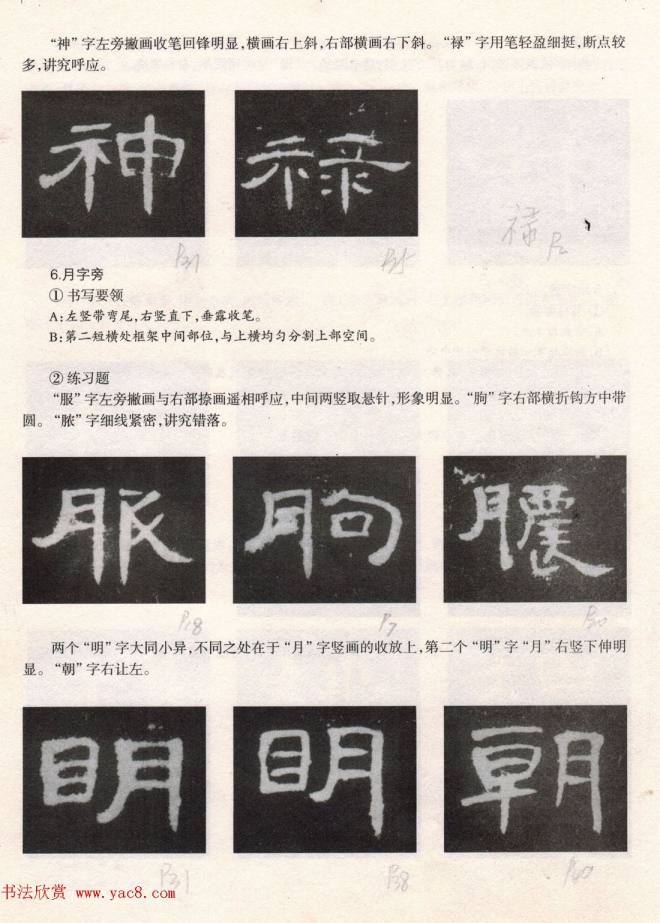 “神”字左旁撇画收笔回锋明显,横画右上斜,右部横画右下斜。“禄”字用笔轻盈细挺,断点较
多,讲究呼应。
神 禄
禄 P2
P31 P35
6.月字旁
① 书写要领
A:左竖带弯尾,右竖直下,垂露收笔。
B:第二短横处框架中间部位,与上横均匀分割上部空间。
② 练习题
“服”字左旁撇画与右部捺画遥相呼应,中间两竖取悬针,形象明显。“朐”字右部横折钩方中带
圆。“脓”字细线紧密,讲究错落。
服 朐 膿
P18 P7 P30
两个“明”字大同小异,不同之处在于“月”字竖画的收放上,第二个“明”字“月”右竖下伸明
显。“朝”字右让左。
明 明 朝
P31 P38 P30
书法欣赏 www.yac8.com